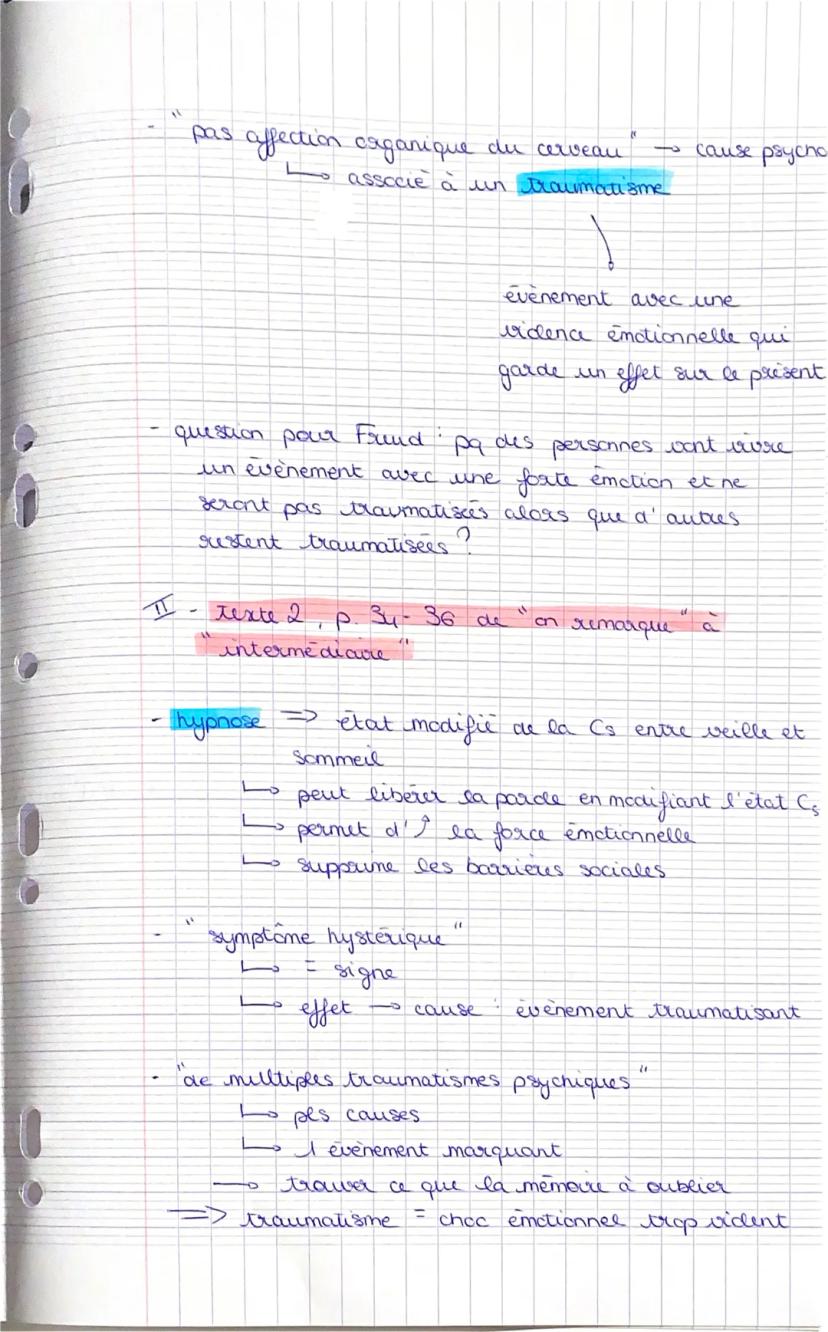 - "pas affection organique du cerveau" → cause psycho
↳ associé à un traumatisme
évènement avec une
violence émotionnelle qui
garde un effet sur le présent
- question pour Freud : pq des personnes vont vivre
un évènement avec une forte émotion et ne
seront pas traumatisées alors que d'autres
restent traumatisées ?
II - Texte 2, p. 34-36 de "on remarque" à
"intermédiaire"
- hypnose => état modifié de la Cs entre veille et
sommeil
↳ peut libérer la parole en modifiant l'état Cs
↳ permet d'↑ la force émotionnelle
↳ supprime les barrières sociales
- "symptôme hystérique"
↳ = signe
↳ effet → cause : évènement traumatisant
- "de multiples traumatismes psychiques"
↳ pls causes
↳ 1 évènement marquant
→ trouver ce que la mémoire à oublier
=> traumatisme = choc émotionnel trop violent